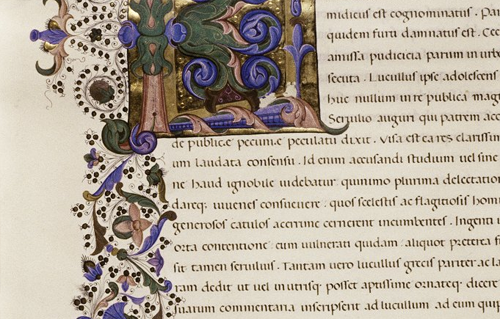 midicus est cognominatus. Pa
quidem furti damnatus est. Cec
amissa pudicicia parum in turbe
secuta. Lucullus ipse adolescens
huc nullum in re publica mag
Seruilio auguri qui patrem acc
de publicæ pecuniæ peculatu dixit. Visa est ea res clarissim
um laudata consensu. Id enim accusandi studium uel sine
ne haud ignobile uidebatur quinimo plurima delectation
dareq. iuuenes consueuere: quos scelestis ac flagitiosis homi
generosos catulos acerrime cernerent incumbentes. Ingenti i
orta contentione: cum uulnerati quidam: aliquot præterea f
sit tamen seruilius. Tantam uero lucullus grecis pariter ac la
ram dedit ut uel in utrisq. posset aptissime ornateq. dicere
suarum commentaria inscripserit ad lucullum ad eum quip